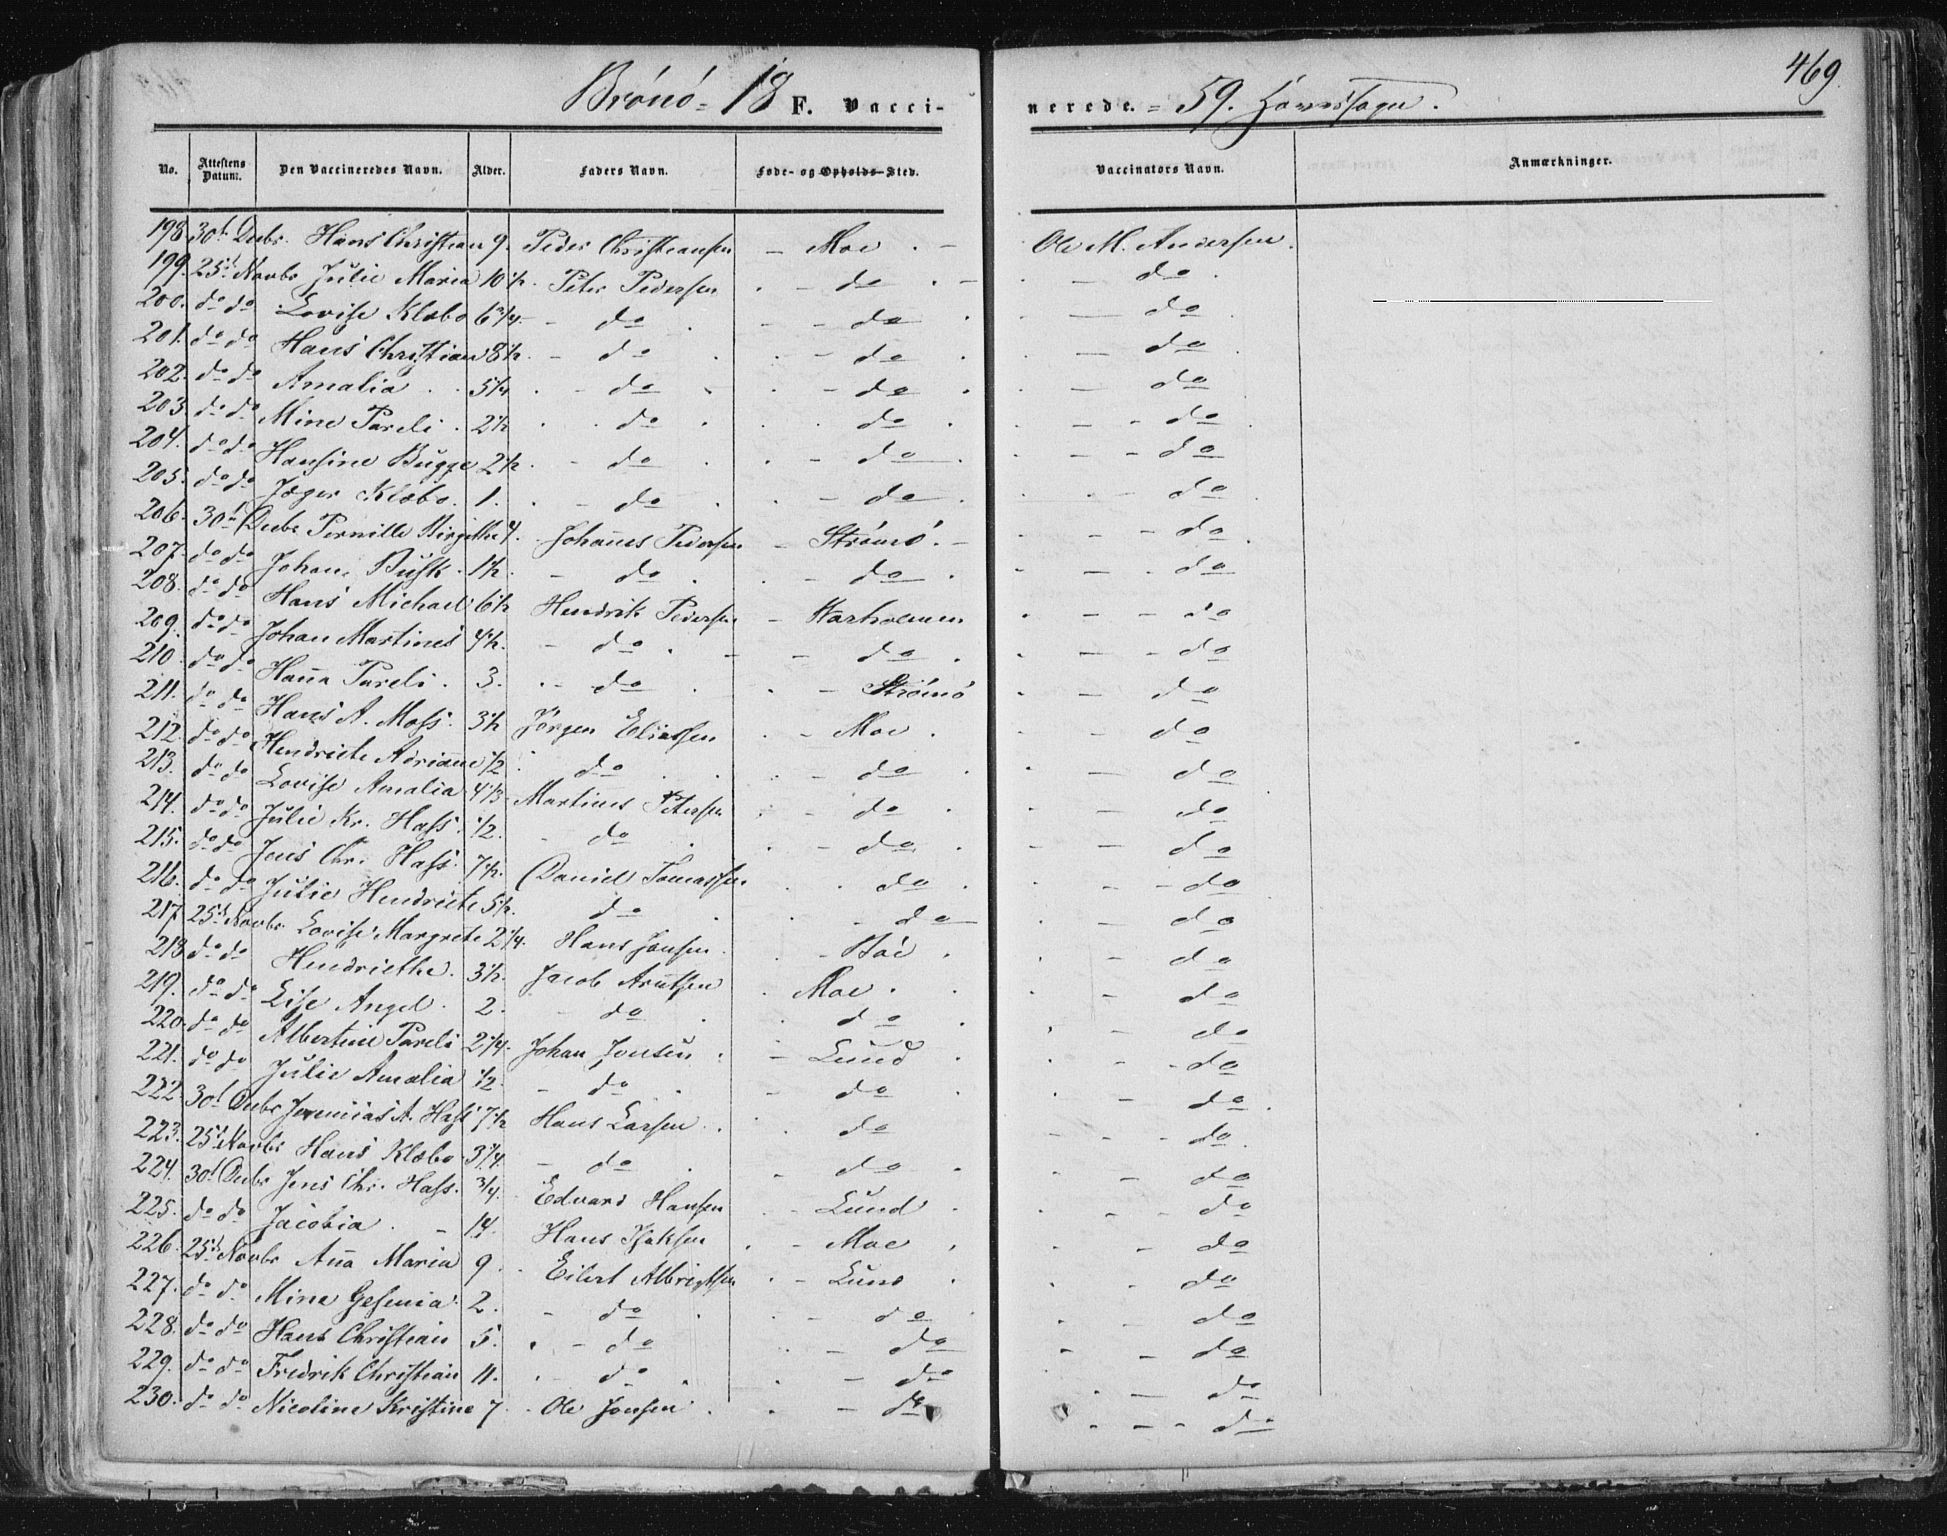 469.
Brönö = 18 F. Vacci- nerede. = 59. Hovedsogn.
No. Attestens Datum. Den Vaccineredes Navn. Alder. Faders Navn. Føde- og Opholds-Sted. Vaccinators Navn. Anmærkninger.
198 30t Decbr. Hans Christian 9. Peder Christiansen - Moe . - Ole M. Andersen.
199. 25t Novbr Julie Maria 10 1/2. Peter Pedersen - do - do
200. do do Lovise Klæbo 6 3/4 - do - do - do
201. do do Hans Christian 8 1/2 - do - do - do
202. do do Amalia 5 1/4 - do - do - do
203. do do Mine Pareli 2 1/2 do do - do
204. do do Hansine Bugge 2 1/2 - do - do - do
205. do do Jæger Klæbo 1. - do - do - do
206. 30t Decbr Pernille Birgitte 4. Johañes Pedersen - Strömö - do
207. do do Johan Busk 1 1/2 - do - do - do
208. do do Hans Michael 6 1/2 Hendrik Pedersen - do
209. do do Johan Martinus 4 1/2. - do - do - do
210. do do Haña Pareli 3. - do - Strömö - do
211. do do Hans A. Moss 3 1/2 Jörgen Eliassen - Moe - do
212. do do Hendriete Adriane 1/2 do - do - do
213. do do Lovise Amalia 4 1/3 Martinus Petersen - do - do
214. do do Julie Kr. Hass 1/2. - do - do - do
215. do do Jens Chr. Hass. 7 1/2. Daniel Tomassen do - do
216. do do Julie Hendriete 5 1/2. do - do - do
217 25t Novbr Lovise Margrete 2 1/4. Hans Jansen - do
218 do do Hendriethe 3 1/2. Jacob Arntsen Moe - do
219. do do Lise Angel 2. do do do
220. do do Albertine Pareli 2 1/4 Johan Jonsen - Lund - do
221. do do Julie Amalia 1/2 - do - do - do
222. 30t Decbr Jeremias A. Hass 7 1/2 Hans Larsen do - do
223. 25t Novbr Hans Klæbo 3 1/4. - do - do - do
224. 30t Decbr Jens Chr. Hass. 3/4. Edvard Hansen - Lund - do
225. do do Jacobia 14. Hans Isaksen - Moe - do
226. 25t Novbr Aña Maria 9 Eilert Albrigtsen - Lund - do
227. do do Mine Gesenia 2. - do - do - do
228. do do Hans Christian 5. - do - do - do
229. do do Fredrik Christian 11. do - do - do
230. do do Nicoline Kristine 7. Ole Jonsen - do - do